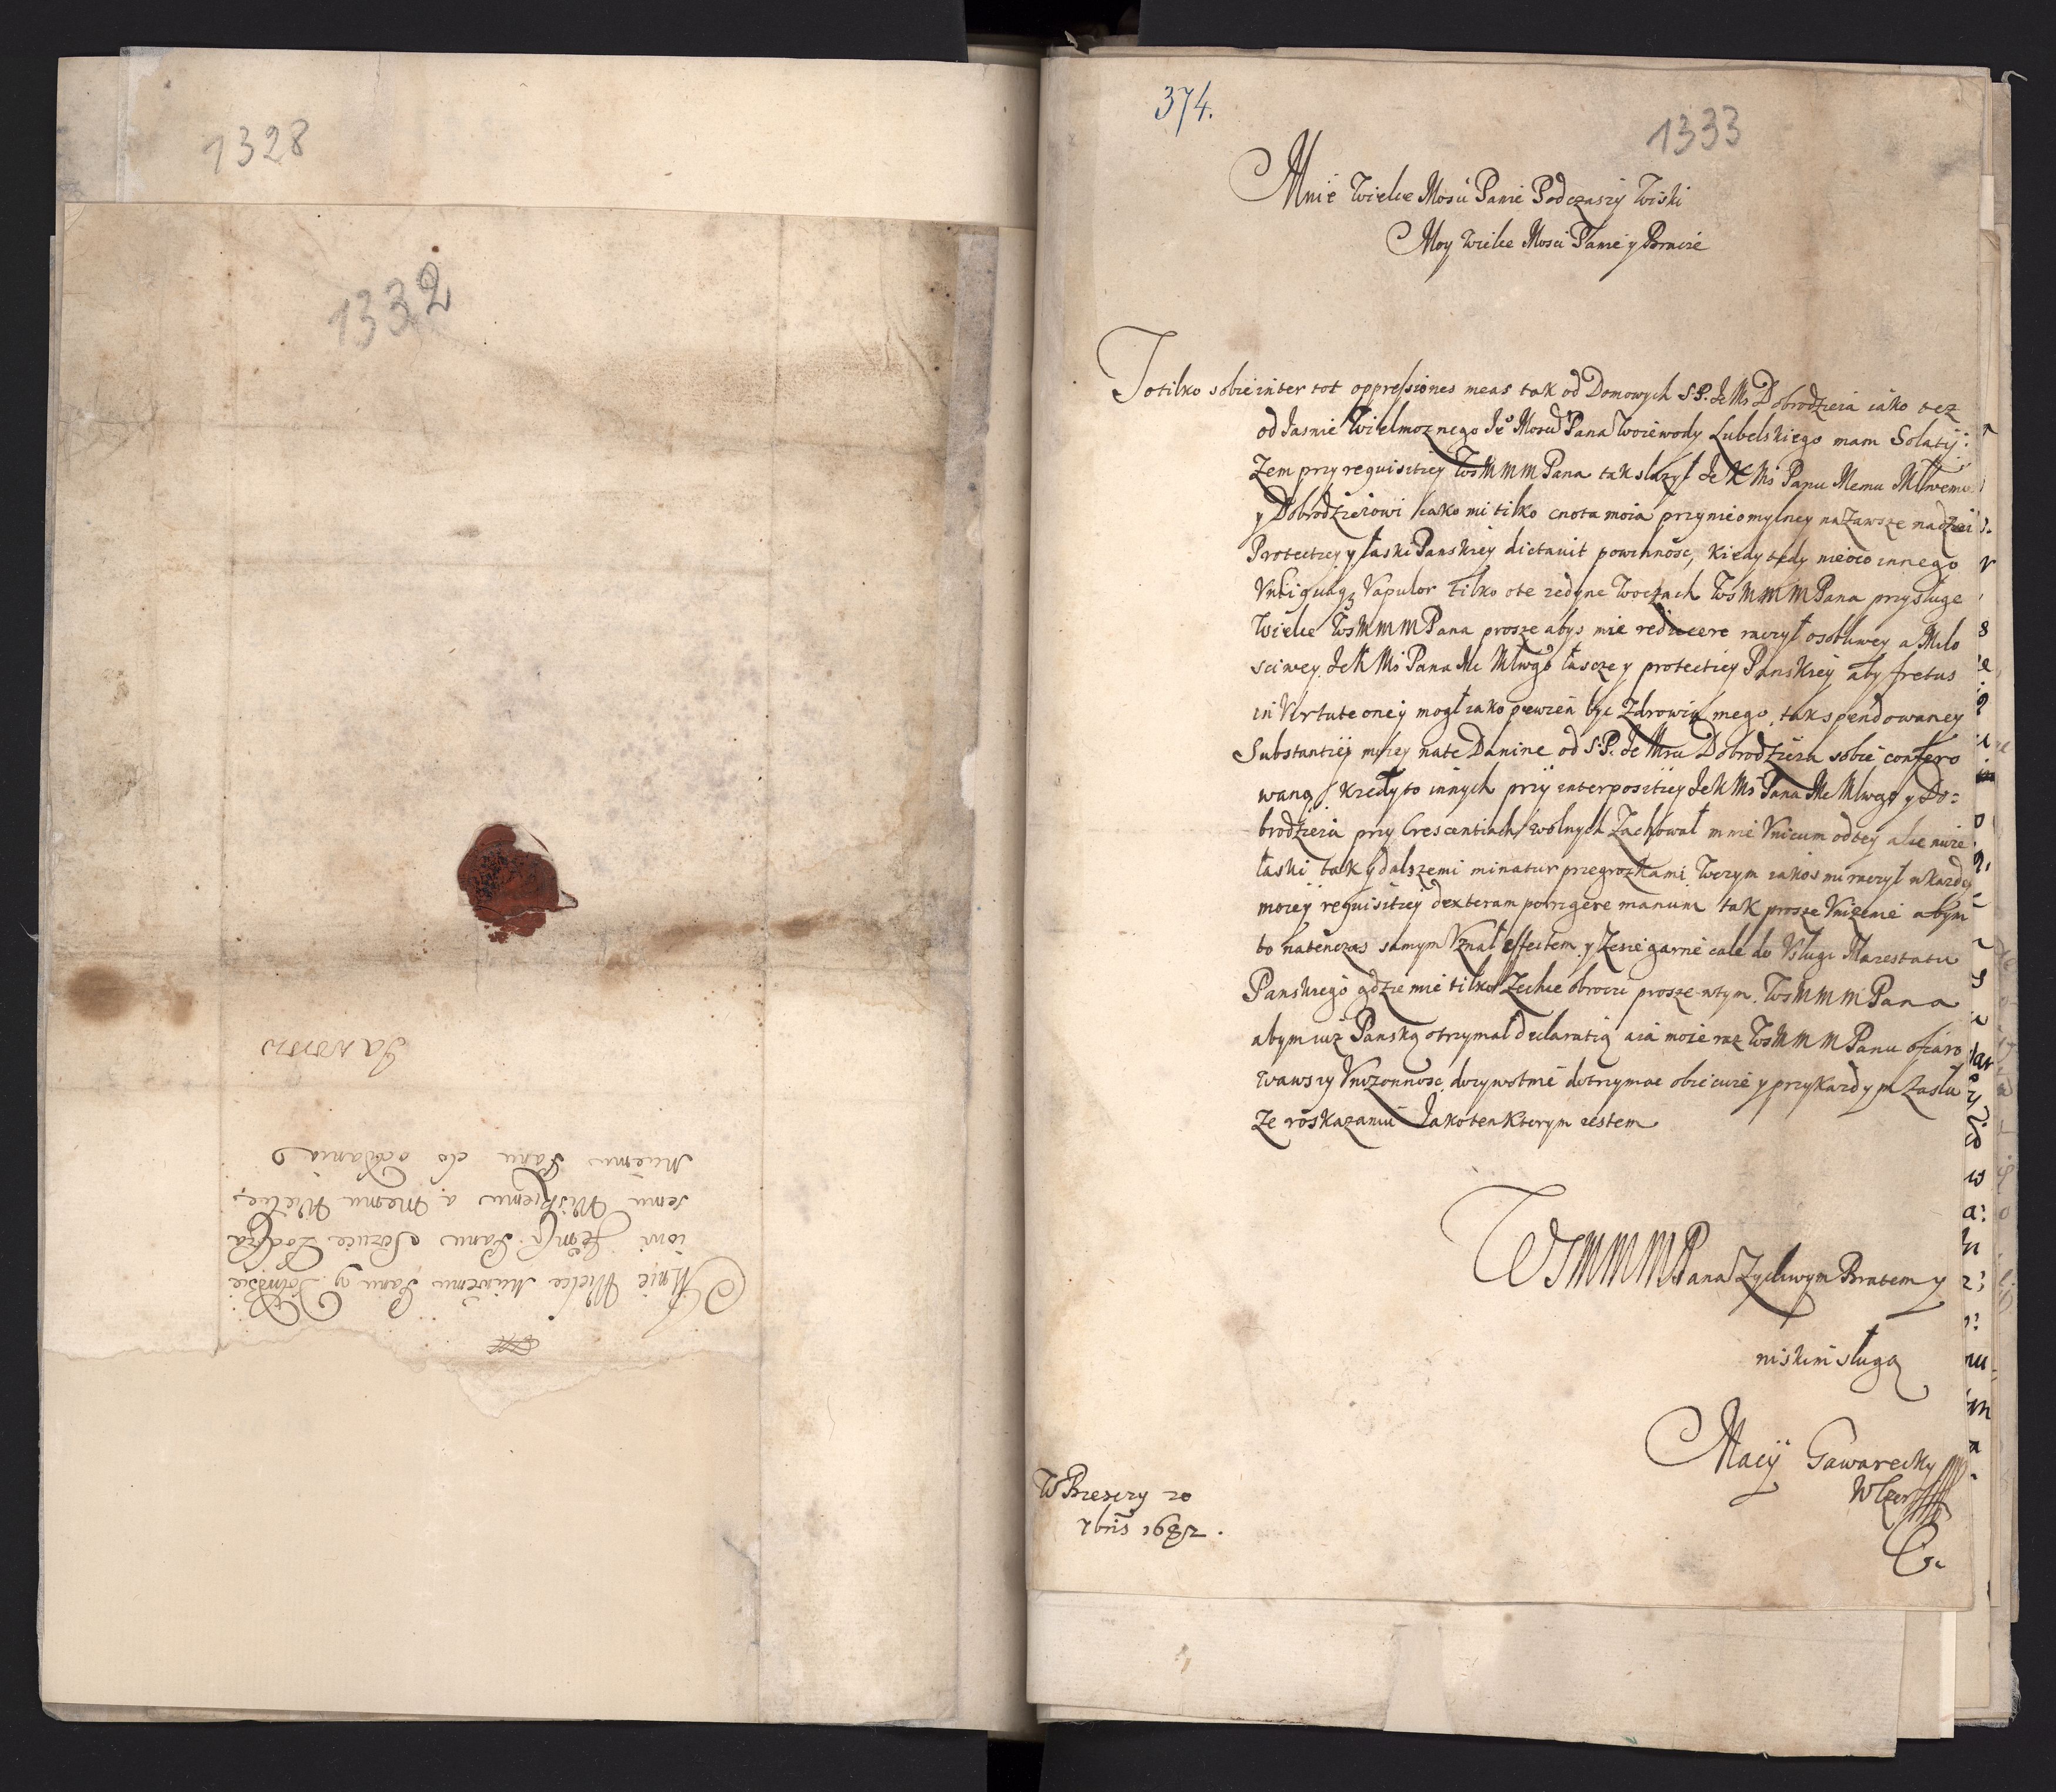 1328
1332
Jaworow
Mnie Wielce Mciwemu Panu y Dobrodzie
iowi Jem Panu Sczuce Podcza
szemu Wiskiemu a memu Wielce
Mciemu Panu do oddania
374.
1333
Mnie Wielce Mosci Panie Podczaszy Wiski
Moy Wielce Mosci Panie y Bracie
To tilko sobie inter tot oppressiones meas tak od Domowych S.P. Je Mci Dobrodzieia iako tez
od Jasnie Wielmoznego Je° Mosci Pana Woiewody Lubelskiego mam Solatij:
Zem przy requisitiey WsMMMPana tak sluzył Je K Ms Panu Memu Mlwemu
y Dobrodzieiowi iako mi tilko cnota moia przy nieomylney na Zawsze nadziei
Protectiey y łaski Panskiey dictavit powinnosc, Kiedy tedy nieoco innego
Vbiquaq3 Vapulor tilko ote iedyne Woczach WsMMMPana przysluge
Wielce WsMMMPana prosze abys mie reducere raczył osobliwey a Milo
sciwey JeK Ms Pana Me Mlwgo łascze y protectiey Panskiey aby fretus
in Virtute oney mogł iako pewien byc Zdrowia mego, tak spendowaney
Substantiey moiey na te Danine od S.P. Je Mci Dobrodzieia sobie confero
waną, Kiedy to innych przy interpositiey JeK Ms Pana Me Mlwego y Do:
brodzieia przy Crescentiach wolnych Zachował mnie Vnicum od tey alienuie
łaski tak y dalszemi minatur przegrozkami, Wczym iakos mi raczył w kazdey
moiey requisitiey dexteram porrigere manum tak prosze Vnizenie abym
to natenczas samym Vznał effectem y Ze sie garne cale do Vslugi Maiestatu
Panskiego gdzie mie tilko Zechce obrocic prosze wtym WsMMMPana
abym iuz Panską otrzymał declaratią aia moie raz WsMMMPanu ofiaro
wawszy Vnizonnosc, dozywotnie dotrzymac obiecuie y przy Kazdym Zaslu
Ze roskazaniu Jako ten Kterym iestem
WSMMMPana Zyczliwym Bratem y
niskim sługą
Maciy Gawarecky
W Brzesczy 20
7bris 1682.